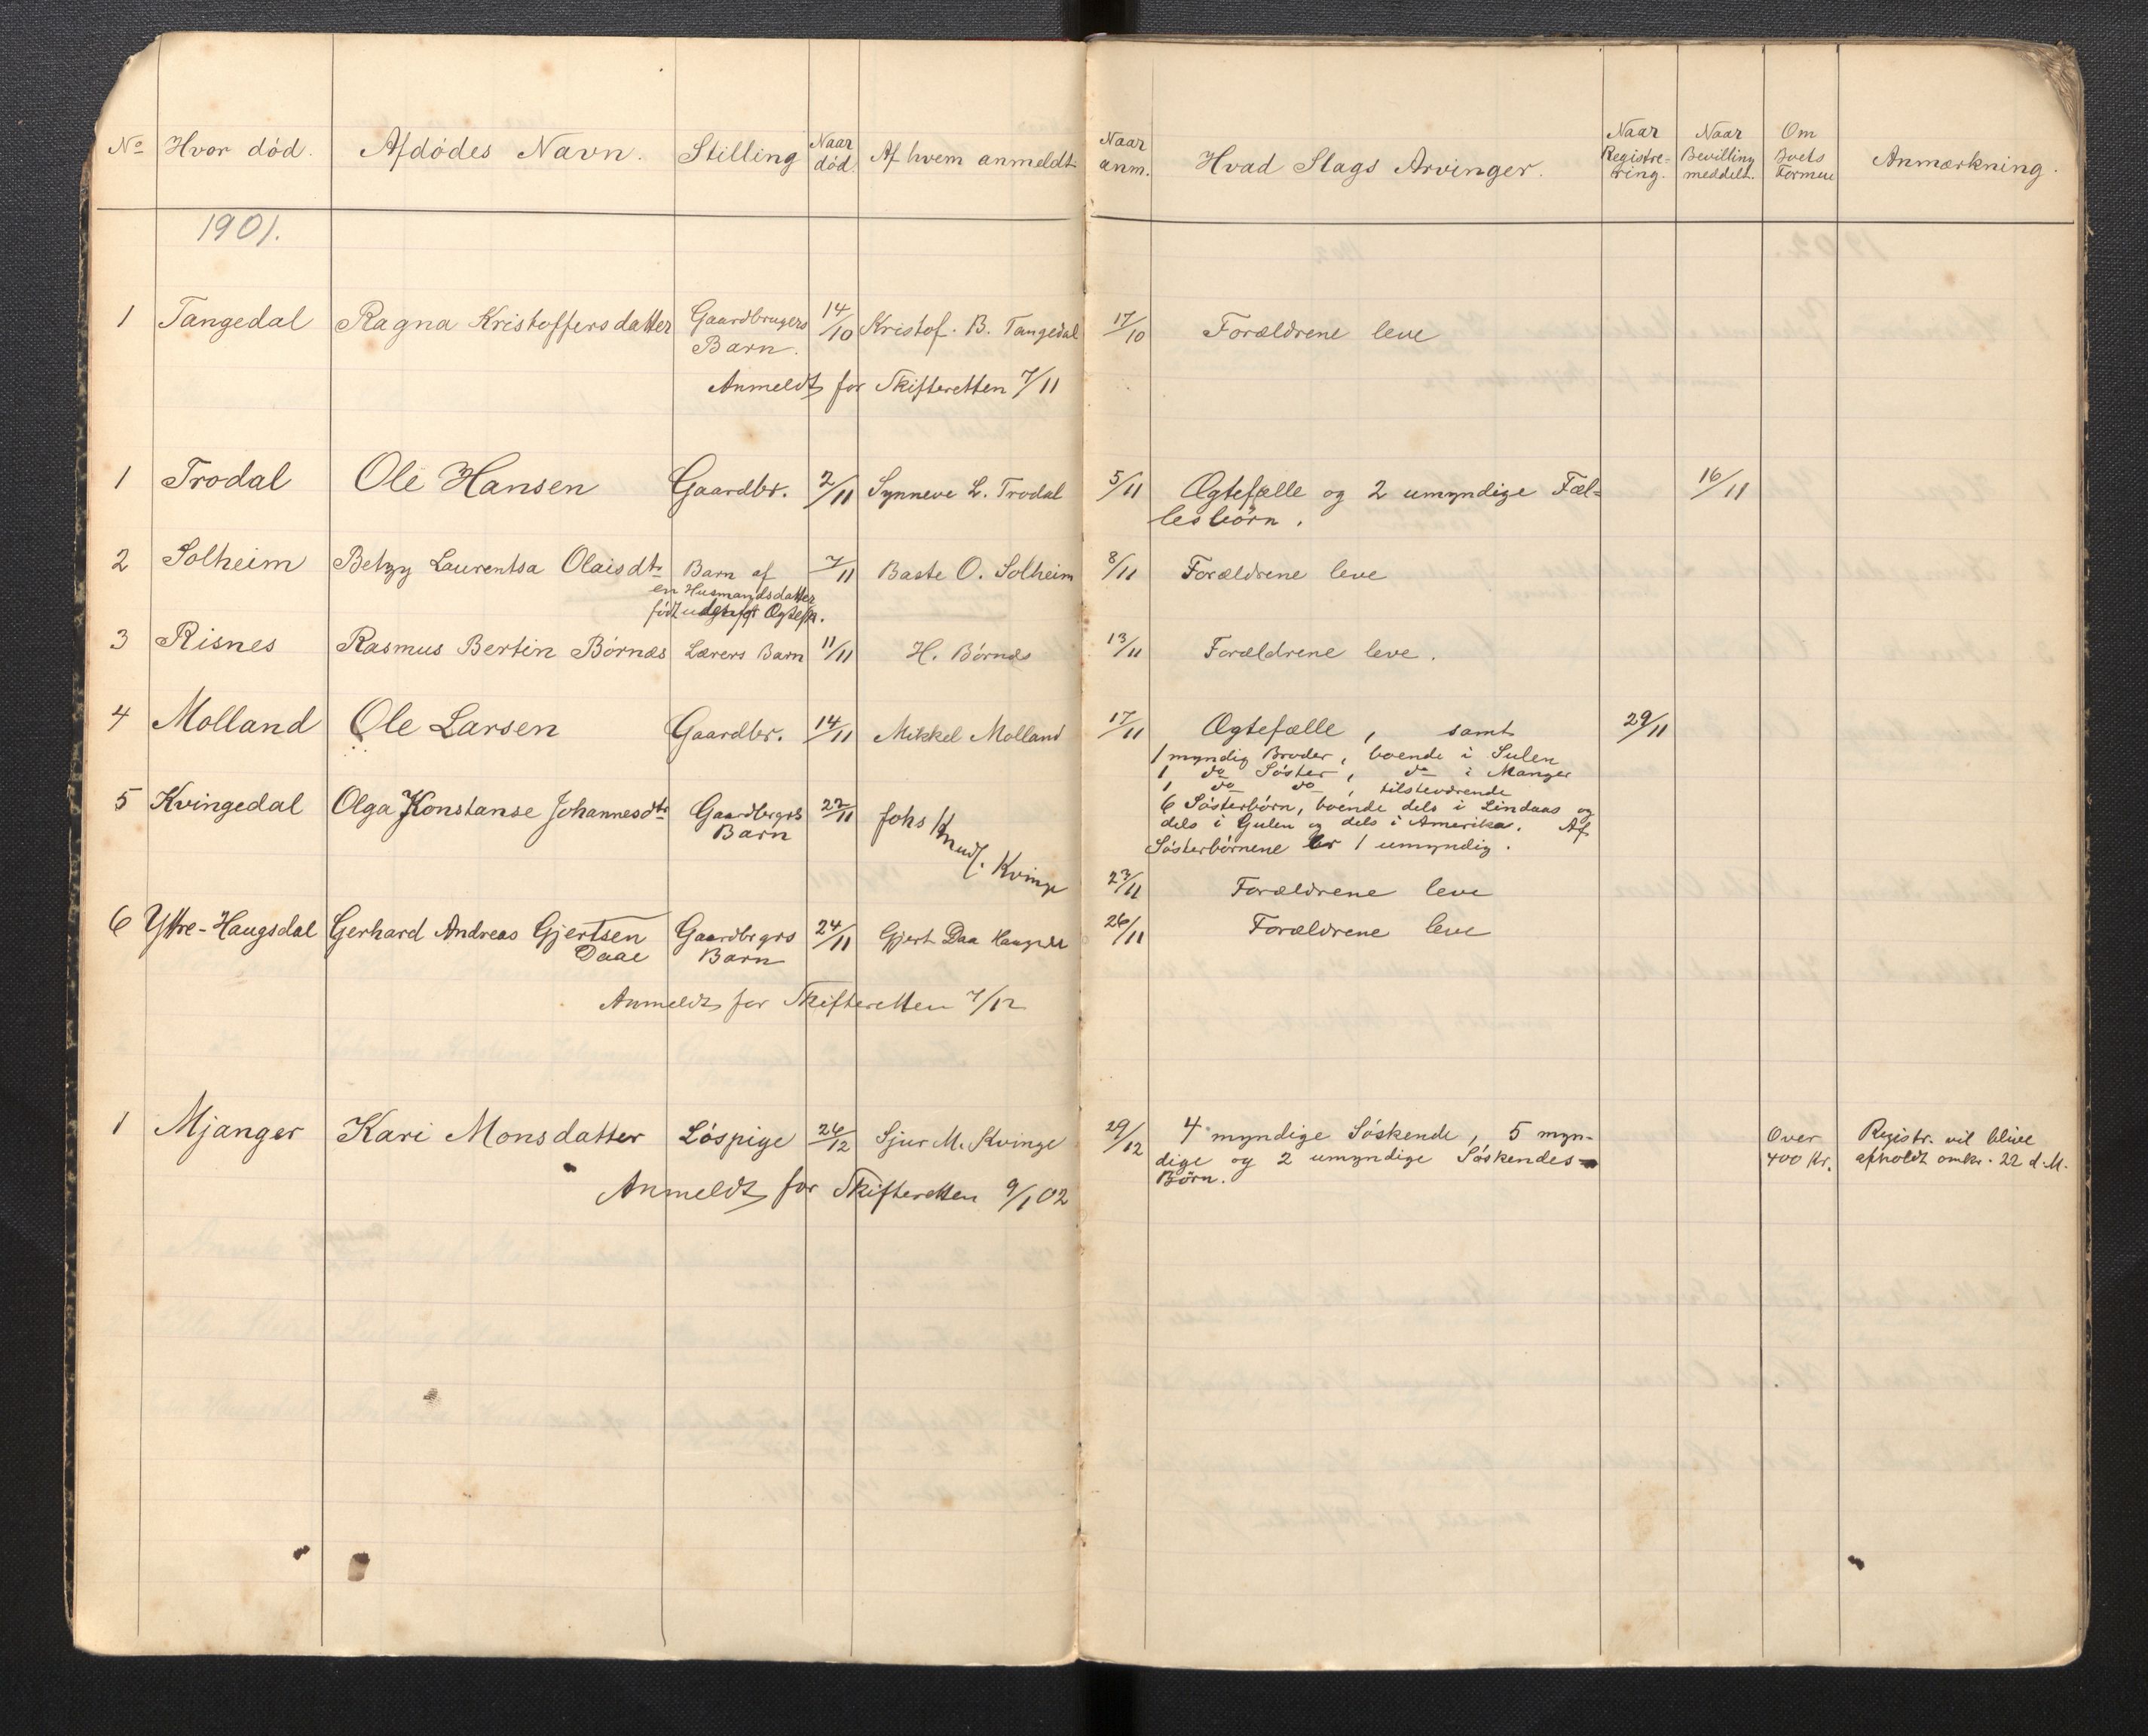 No Hvor død. Afdødes Navn. Stilling Naar død. Af hvem anmeldt Naar anm. Hvad Slags Arvinger. Naar Registrering. Naar Bevilling meddelt. Om Boets Formue Anmærkning.
1901.
1 Tangedal Ragna Kristoffersdatter Gaardbrugers 14/10 Kristof. B. Tangedal 17/10 Forældrene leve
Barn.
Anmeldt for Skifteretten 7/11
1 Trodal Ole Hansen Gaardbr. 2/11 Synneve L. Trodal 5/11 Ægtefælle og 2 umyndige Fæl- 16/11
lesbørn.
2 Solheim Betzy Laurentsa Olaisdtr Barn af 7/11 Baste O. Solheim 8/11 Forældrene leve
en Husmandsdatter
født udenfor Ægtesk.
3 Risnes Rasmus Bertin Børnæs Lærers Barn 11/11 H. Børnæs 13/11 Forældrene leve.
4 Molland Ole Larsen Gaardbr. 14/11 Mikkel Molland 17/11 Ægtefælle, samt 29/11
1 myndig Broder, boende i Sulen
1 do Søster, do i Manger
1 do do, tilsteværende
6 Søsterbørn, boende dels i Lindaas og
dels i Gulen og dels i Amerika. Af
Søsterbørnene er 1 umyndig.
5 Kvingedal Olga Konstanse Johannesdtr Gaardbrgrs 22/11 Johs Knuds. Kvinge 23/11 Forældrene leve
Barn
6 Yttre-Haugsdal Gerhard Andreas Gjertsen Gaardbrgrs 24/11 Gjert Daa 26/11 Forældrene leve
Daae Barn
Anmeldt for Skifteretten 7/12
1 Mjanger Kari Monsdatter Løspige 26/12 Sjur M. Kvinge 29/12 4 myndige Søskende, 5 myn- Over Registr. vil blive
dige og 2 umyndige Søskendes- 400 Kr. afholdt omkr. 22 d. M.
Børn.
Anmeldt for Skifteretten 9/1 02